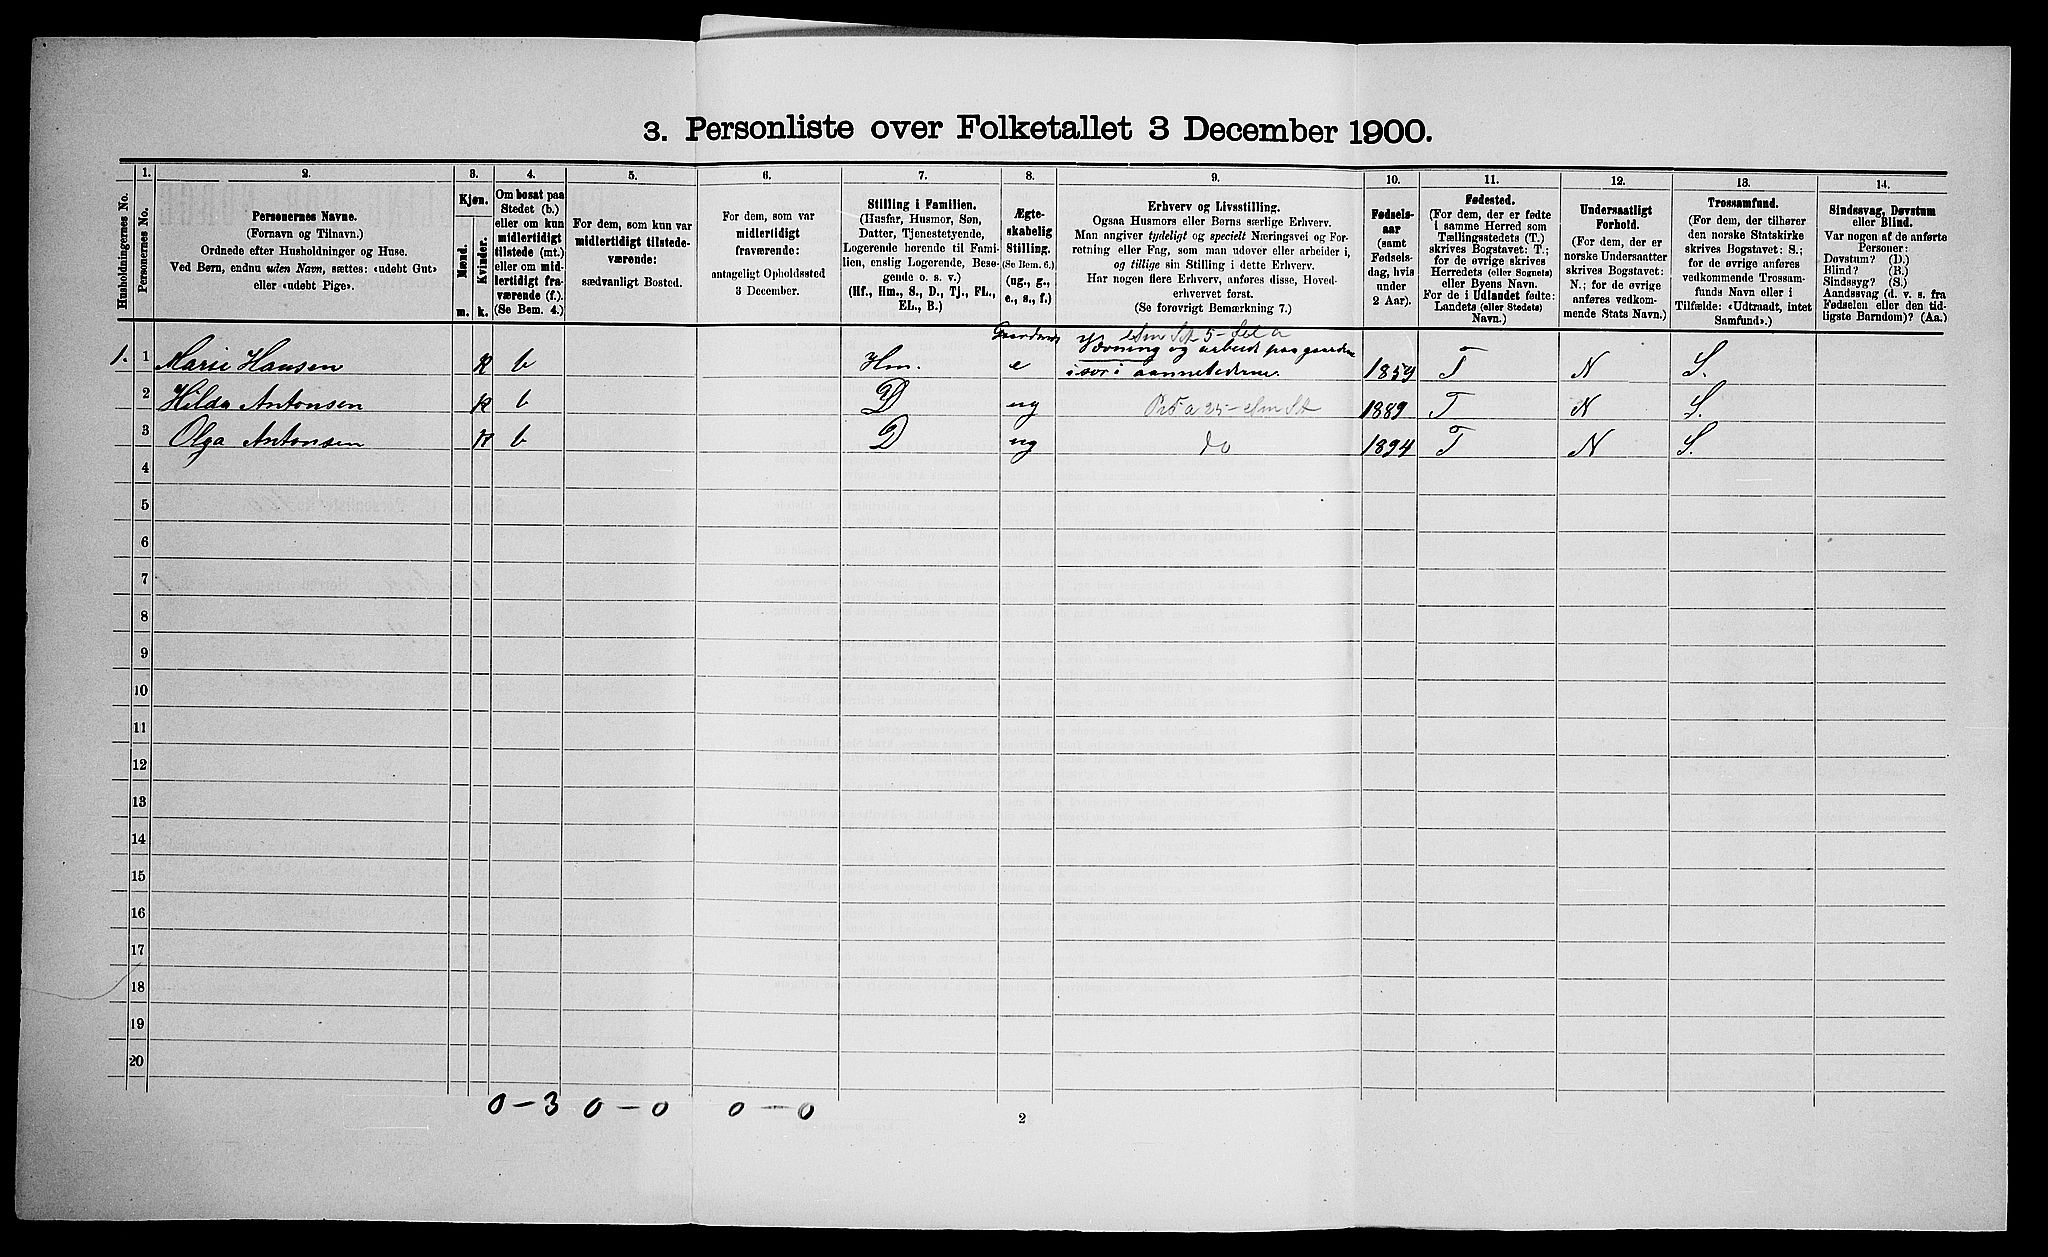 3. Personliste over Folketallet 3 December 1900.
Husholdningernes No.
1.
Personernes No.
2.
Personernes Navne.
(Fornavn og Tilnavn.)
Ordnede efter Husholdninger og Huse.
Ved Børn, endnu uden Navn, sættes: «udøbt Gut»
eller «udøbt Pige».
3.
Kjøn.
Mænd.
Kvinder.
m. k.
4.
Om bosat paa
Stedet (b.)
eller om kun
midlertidigt
tilstede (mt.)
eller om mid-
lertidigt fra-
værende (f.).
(Se Bem. 4.)
5.
For dem, som kun var
midlertidigt tilstede-
værende:
sædvanligt Bosted.
6.
For dem, som var
midlertidigt
fraværende:
antageligt Opholdssted
3 December.
7.
Stilling i Familien.
(Husfar, Husmor, Søn,
Datter, Tjenestetyende,
Logerende hørende til Fami-
lien, enslig Logerende, Besø-
gende o. s. v.)
(Hf., Hm., S., D., Tj., FL.,
EL., B.)
8.
Ægte-
skabelig
Stilling.
(Se Bem. 6.)
(ug., g.,
e., s., f.)
9.
Erhverv og Livsstilling.
Ogsaa Husmors eller Børns særlige Erhverv.
Man angiver tydeligt og specielt Næringsvei og For-
retning eller Fag, som man udøver eller arbeider i,
og tillige sin Stilling i dette Erhverv.
Har nogen flere Erhverv, anføres disse, Hoved-
erhvervet først.
(Se forøvrigt Bemærkning 7.)
10.
Fødsels-
aar
(samt
Fødsels-
dag, hvis
under
2 Aar).
11.
Fødested.
(For dem, der er fødte
i samme Herred som
Tællingsstedets (T.)
skrives Bogstavet: T.;
for de øvrige skrives
Herredets (eller Sognets)
eller Byens Navn.
For de i Udlandet fødte:
Landets (eller Stedets)
Navn.)
12.
Undersaatligt
Forhold.
(For de, der er
norske Undersaatter
skrives Bogstavet:
N.; for de øvrige
anføres vedkom-
mende Stats Navn.)
13.
Trossamfund.
(For dem, der tilhører
den norske Statskirke
skrives Bogstavet: S.;
for de øvrige anføres
vedkommende Trossam-
funds Navn eller i
Tilfælde: «Udtraadt, intet
Samfund».)
14.
Sindssvag, Døvstum
eller Blind.
Var nogen af de anførte
Personer:
Døvstum? (D.)
Blind? (B.)
Sindssyg? (S.)
Aandssvag (d. v. s. fra
Fødselen eller den tid-
ligste Barndom)? (Aa.)
1. 1 Marie Hansen k b Hm. e Vævning og arbeide paa gaardene 1859 T N S.
2 Hilda Antonsen k b D ug 1889 T N S.
3 Olga Antonsen k b D ug do 1894 T N S.
4
5
6
7
8
9
10
11
12
13
14
15
16
17
18
19
20
0-3 0-0 0-0
2